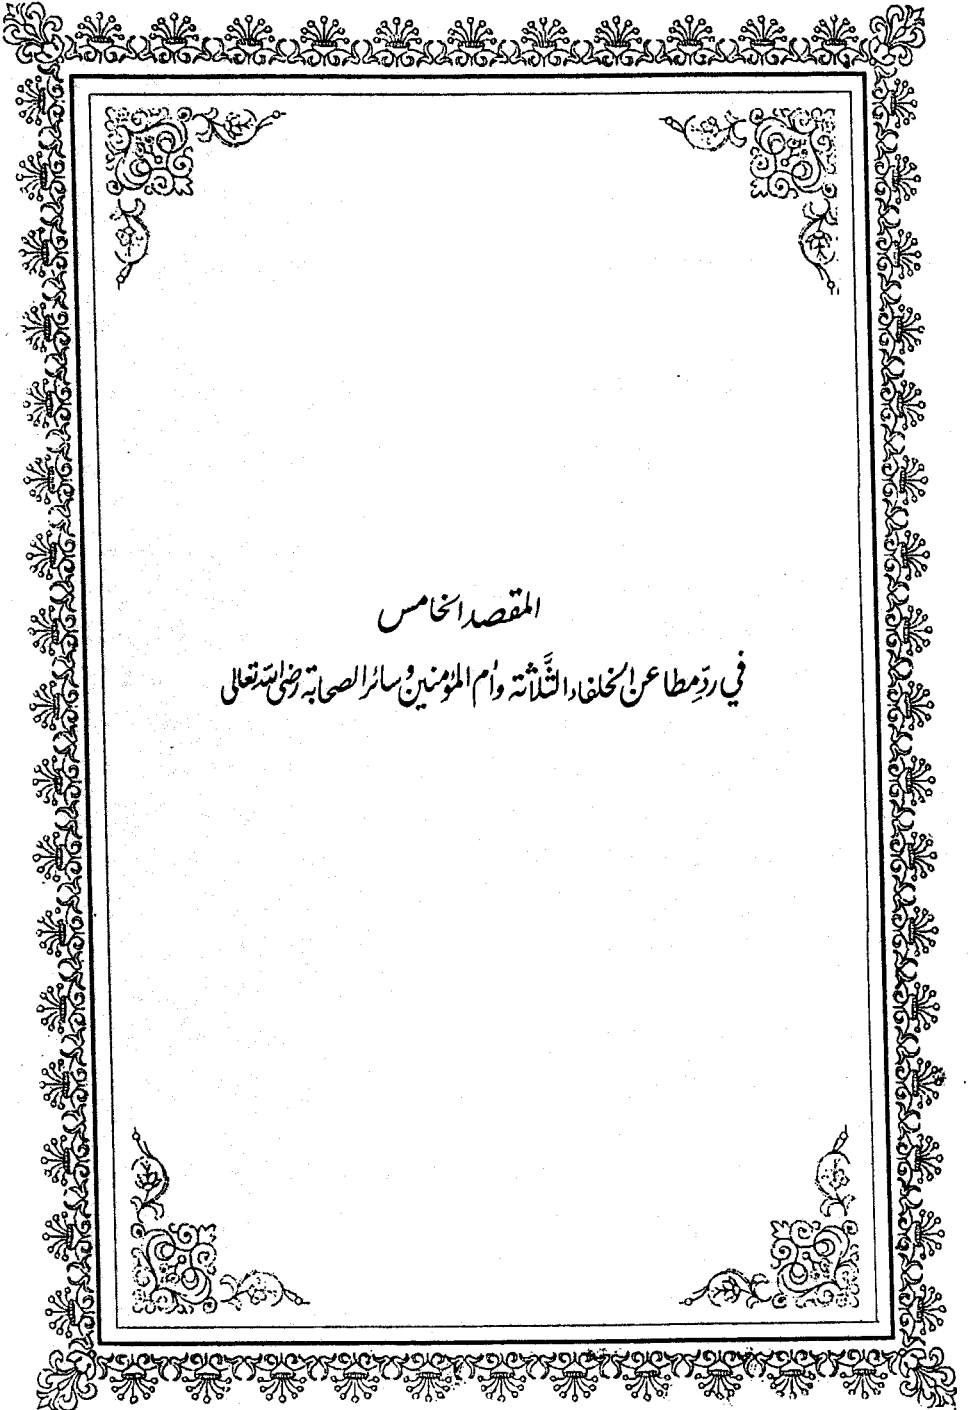 المقصد الخامس
في ردّ مطاعن الخلفاء الثَّلاثة وأم المؤمنين وسائر الصحابة رضی الله تعالی